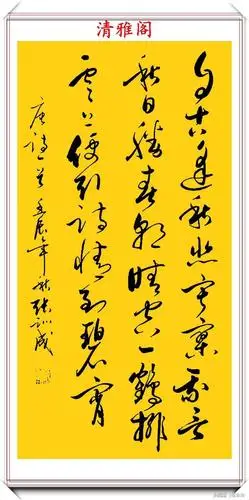 清雅阁
自古逢秋悲寂寥我言
秋日勝春朝晴空一鶴排
雲上便引詩情到碧霄
唐詩一首壬辰年秋張訓成